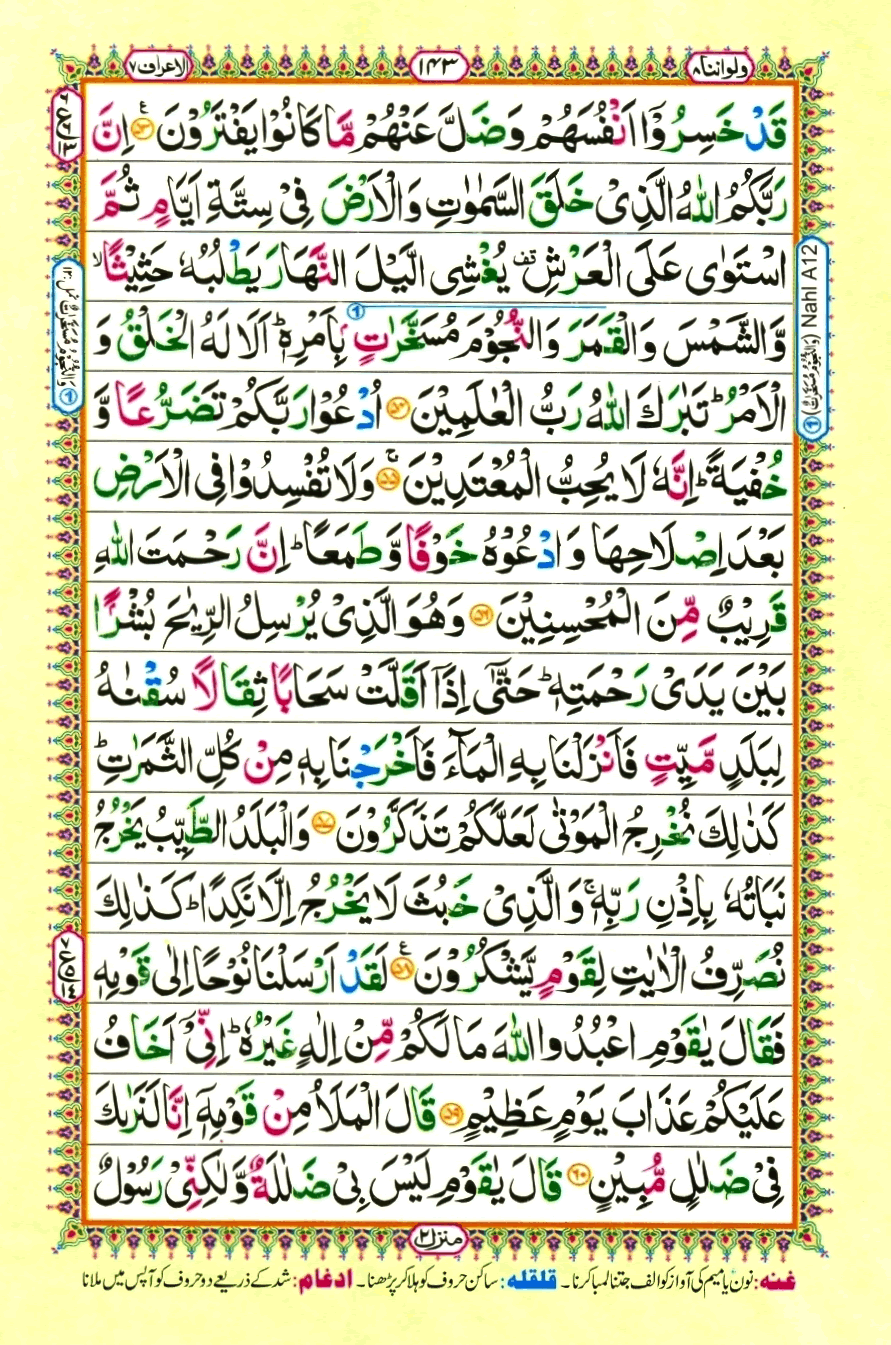 ولواننا ۸
۱۴۳
الاعراف ۷
قَدْ خَسِرُوْۤا اَنْفُسَهُمْ وَضَلَّ عَنْهُمْ مَّا كَانُوْا يَفْتَرُوْنَ ﴿۵۳﴾ اِنَّ
رَبَّكُمُ اللّٰهُ الَّذِیْ خَلَقَ السَّمٰوٰتِ وَالْاَرْضَ فِیْ سِتَّةِ اَيَّامٍ ثُمَّ
اسْتَوٰی عَلَی الْعَرْشِ ۫ يُغْشِی الَّيْلَ النَّهَارَ يَطْلُبُهٗ حَثِيْثًا ۙ
وَّالشَّمْسَ وَالْقَمَرَ وَالنُّجُوْمَ مُسَخَّرٰتٍۭ بِاَمْرِهٖ ؕ اَلَا لَهُ الْخَلْقُ وَ
الْاَمْرُ ؕ تَبٰرَكَ اللّٰهُ رَبُّ الْعٰلَمِيْنَ ﴿۵۴﴾ اُدْعُوْا رَبَّكُمْ تَضَرُّعًا وَّ
خُفْيَةً ؕ اِنَّهٗ لَا يُحِبُّ الْمُعْتَدِيْنَ ۚ﴿۵۵﴾ وَلَا تُفْسِدُوْا فِی الْاَرْضِ
بَعْدَ اِصْلَاحِهَا وَادْعُوْهُ خَوْفًا وَّطَمَعًا ؕ اِنَّ رَحْمَتَ اللّٰهِ
قَرِيْبٌ مِّنَ الْمُحْسِنِيْنَ ﴿۵۶﴾ وَهُوَ الَّذِیْ يُرْسِلُ الرِّيٰحَ بُشْرًۢا
بَيْنَ يَدَیْ رَحْمَتِهٖ ؕ حَتّٰۤی اِذَاۤ اَقَلَّتْ سَحَابًا ثِقَالًا سُقْنٰهُ
لِبَلَدٍ مَّيِّتٍ فَاَنْزَلْنَا بِهِ الْمَآءَ فَاَخْرَجْنَا بِهٖ مِنْ كُلِّ الثَّمَرٰتِ ؕ
كَذٰلِكَ نُخْرِجُ الْمَوْتٰی لَعَلَّكُمْ تَذَكَّرُوْنَ ﴿۵۷﴾ وَالْبَلَدُ الطَّيِّبُ يَخْرُجُ
نَبَاتُهٗ بِاِذْنِ رَبِّهٖ ۚ وَالَّذِیْ خَبُثَ لَا يَخْرُجُ اِلَّا نَكِدًا ؕ كَذٰلِكَ
نُصَرِّفُ الْاٰيٰتِ لِقَوْمٍ يَّشْكُرُوْنَ ﴿۵۸﴾ لَقَدْ اَرْسَلْنَا نُوْحًا اِلٰی قَوْمِهٖ
فَقَالَ يٰقَوْمِ اعْبُدُوا اللّٰهَ مَا لَكُمْ مِّنْ اِلٰهٍ غَيْرُهٗ ؕ اِنِّیْۤ اَخَافُ
عَلَيْكُمْ عَذَابَ يَوْمٍ عَظِيْمٍ ﴿۵۹﴾ قَالَ الْمَلَاُ مِنْ قَوْمِهٖۤ اِنَّا لَنَرٰىكَ
فِیْ ضَلٰلٍ مُّبِيْنٍ ﴿۶۰﴾ قَالَ يٰقَوْمِ لَيْسَ بِیْ ضَلٰلَةٌ وَّلٰكِنِّیْ رَسُوْلٌ
منزل ۲
① (وَالنُّجُوْمُ مُسَخَّرٰتٌ) Nahl A12
① وَالنُّجُوْمُ مُسَخَّرٰتٌ نحل ۱۲
غنه: نون یا میم کی آواز کو الف جتنا لمبا کرنا۔ قلقله: ساکن حروف کو ہلا کر پڑھنا۔ ادغام: شد کے ذریعے دو حروف کو آپس میں ملانا